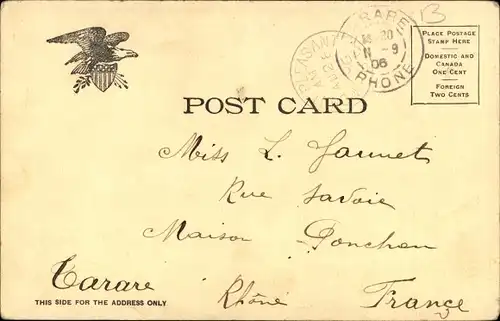 B
PLACE POSTAGE
STAMP HERE
DOMESTIC AND
CANADA
ONE CENT
FOREIGN
TWO CENTS
PLEASANT
RARE
RHONE
06
POST CARD
Miss L.
Rue Savoie
Maison Ponchon
Tarare
THIS SIDE FOR THE ADDRESS ONLY
Rhône France